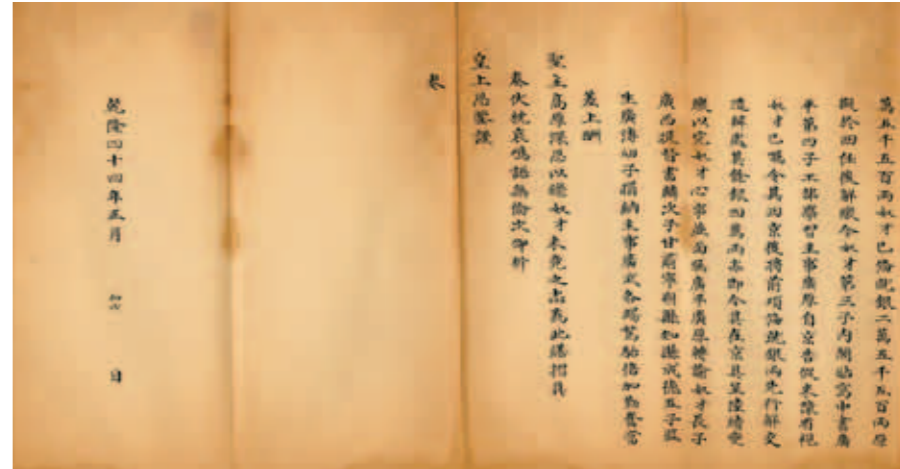 萬五千五百兩奴才已備就銀二萬五千五百兩原
擬於回任後解繳今奴才第三子內閣貼寫中書廣
平第四子工部學習主事廣厚自京告假來謙看視
奴才已囑令其回京後將前項備就銀兩先行解交
造辦處其餘銀四萬兩亦即令其在京具呈陸續變
繳以完奴才心事並面囑廣平廣厚轉諭奴才長子
廣西提督書麟次子甘肅寧朔縣知縣成德五子監
生廣傳幼子捐納主事廣武各竭駑駘倍加勤奮嘗
蓋上酬
聖主高厚深恩以繼奴才未竟之志為此繕摺具
奏伏枕哀鳴語無倫次仰祈
皇上恩鑒謹
奏
乾隆四十四年五月 初六 日